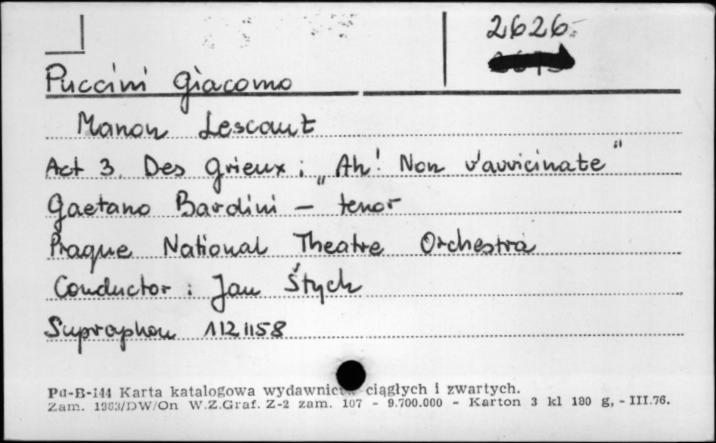 2626
Puccini Giacomo
Manon Lescaut
Act 3. Des Grieux : „Ah! Non v'avvicinate"
Gaetano Bardini – tenor
Prague National Theatre Orchestra
Conductor : Jan Štych
Supraphon 1121158
Pu-B-144 Karta katalogowa wydawnictw ciągłych i zwartych.
Zam. 1963/DW/On W.Z.Graf. Z-2 zam. 107 - 9.700.000 - Karton 3 kl 180 g, - III.76.